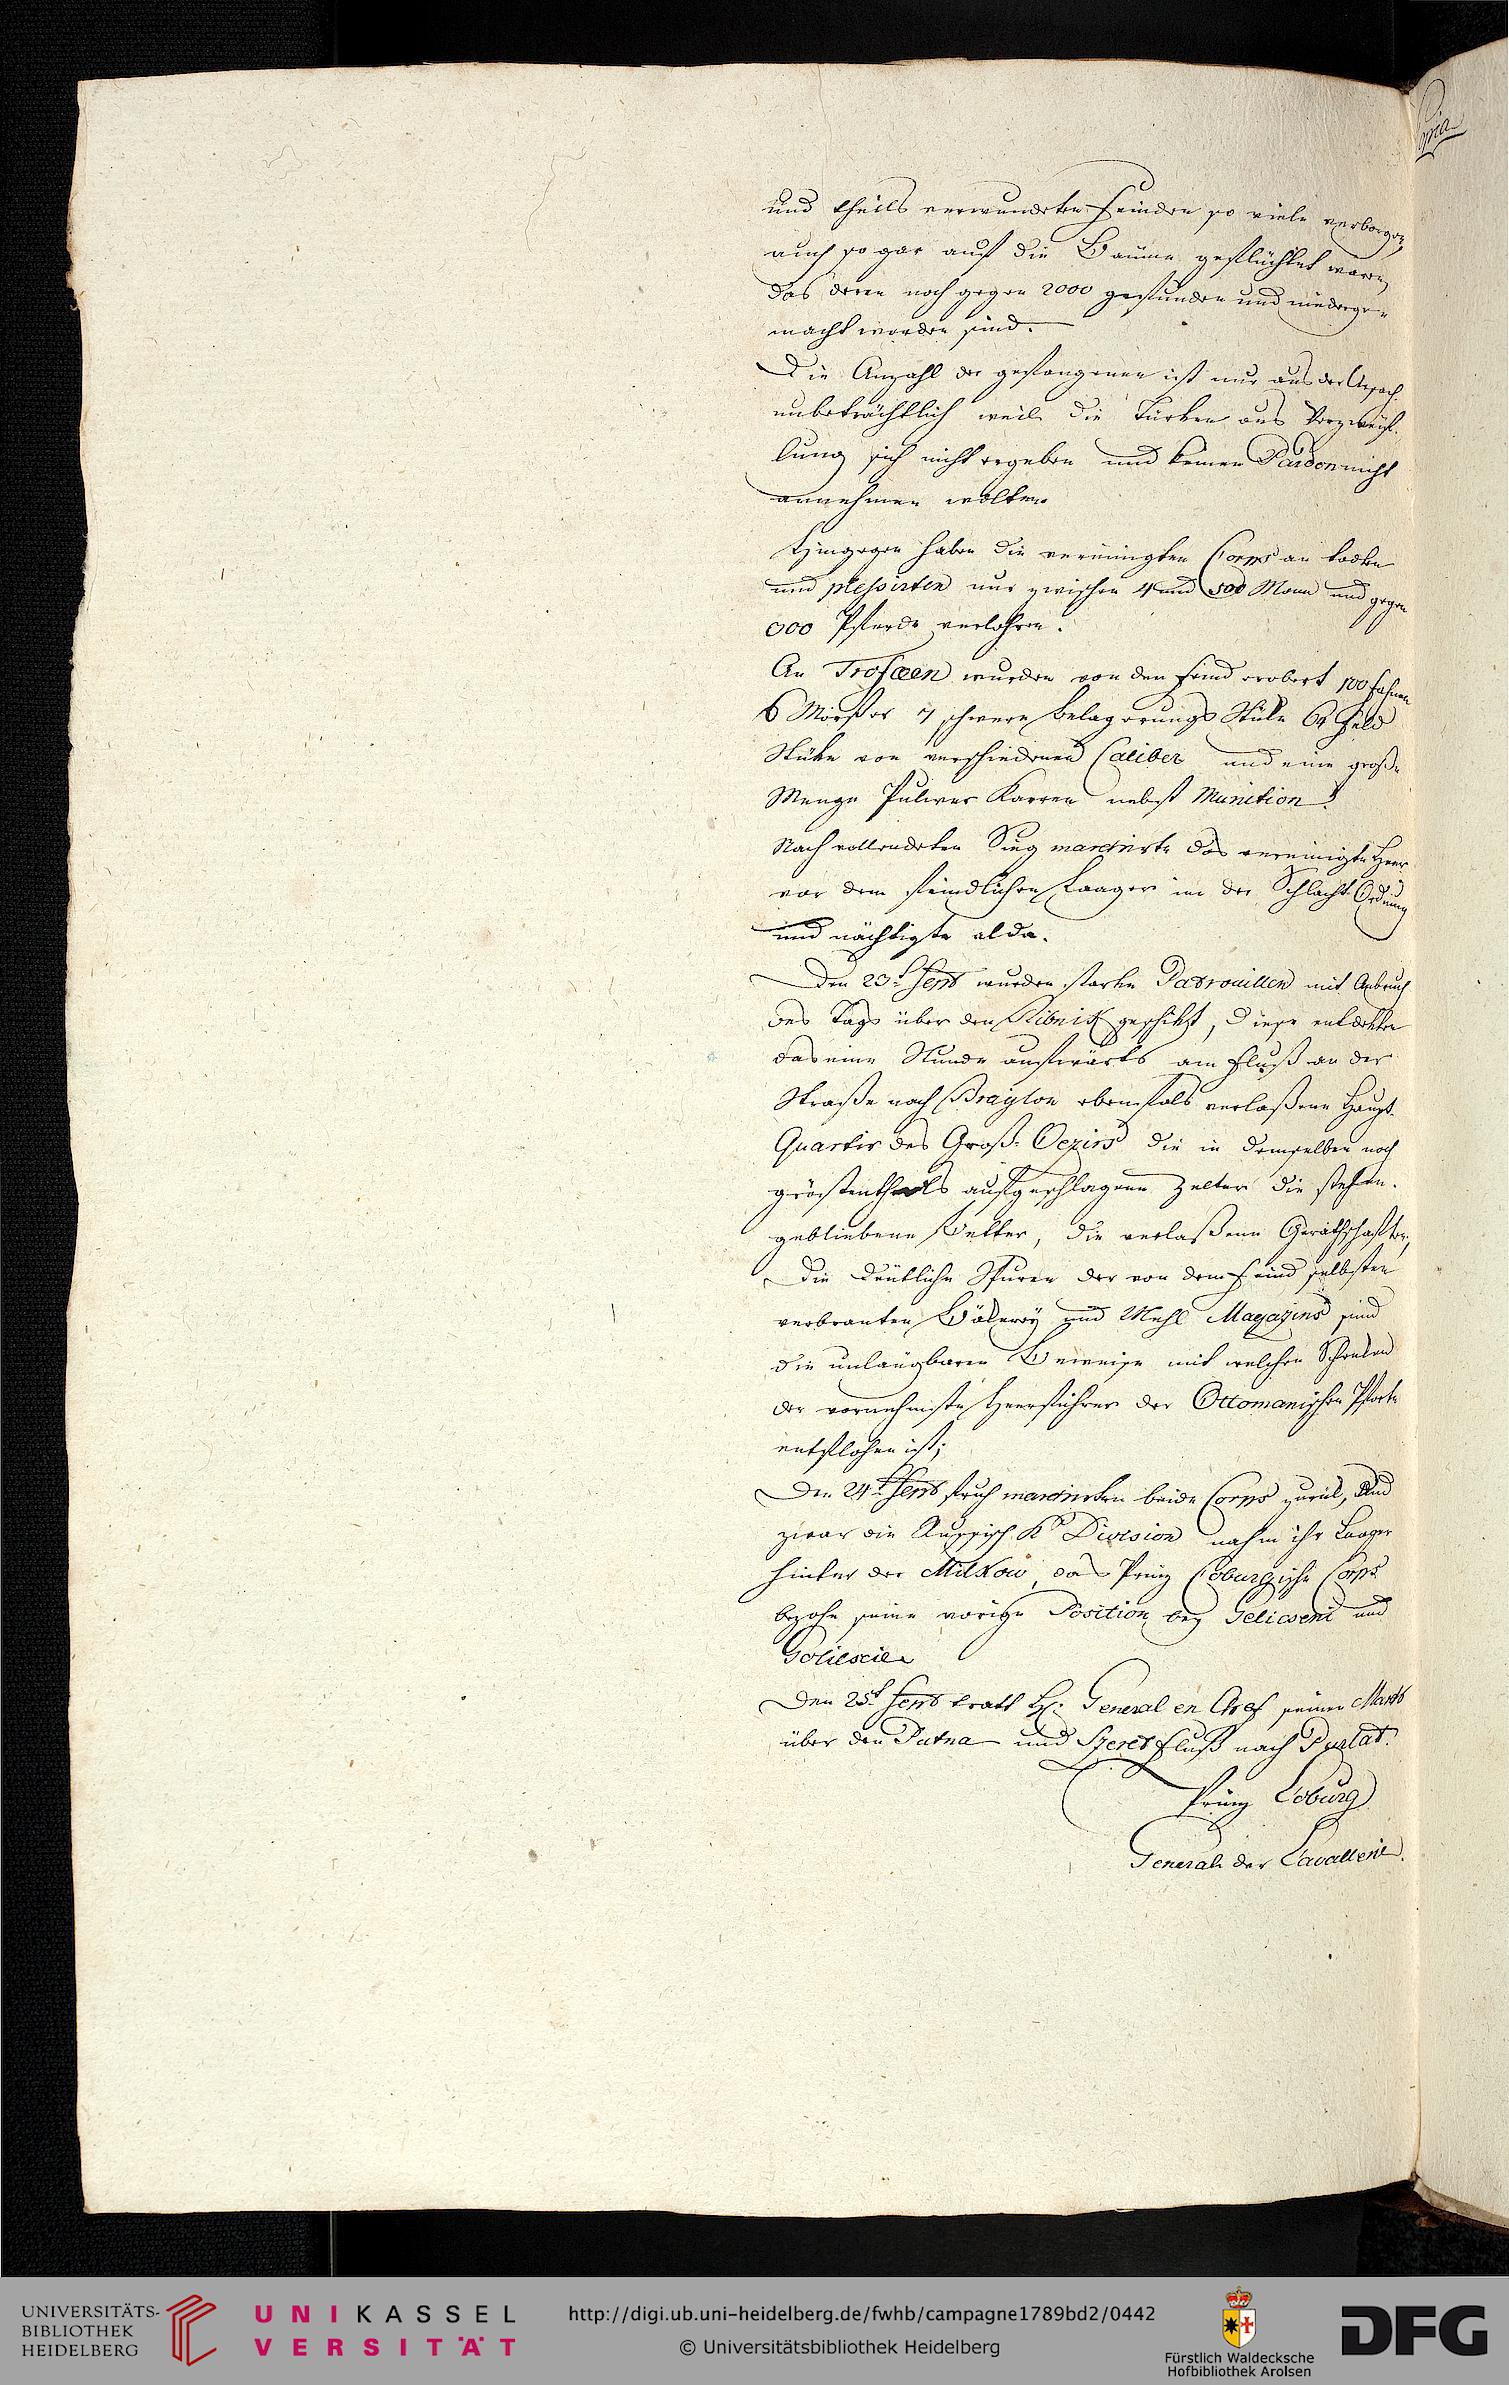 und theils verwundeten Feinden so viele verborgen,
auch so gar auf die Bäume geflüchtet waren,
das deren noch gegen 2000 gefunden und niederge-
macht worden sind.
Die Anzahl der gefangenen ist nur aus der Ursach
unbeträchtlich weil die Türken aus Verzweif-
lung sich nicht ergeben und keinen Pardon nicht
annehmen wolten.
Hingegen haben die vereinigten Corps an todten
und plessirten nur zwischen 4 und 500 Mann und gegen
300 Pferde verlohren.
An Trofæen wurden von den Feind erobert 100 Fahnen
6 Mörßer 7 schwere Belagerungs Stüke 64 Feld
Stüke von verschiedenen Caliber und eine große
Menge Pulver Karren nebst Munition.
Nach vollendeten Sieg marchirte das vereinigte Heer
vor dem feindlichen Laager in der Schlacht Ordnung
und nächtigte alda.
Den 23t. Sepb wurden starke Patrouillen mit Anbruch
des Tags über den Ribnik geschikt, Diese entdekten
das eine Stunde aufwärts am Fluß an der
Straße nach Braylow ebenfals verlaßene Haupt-
Quartir des Groß-Vezirs die in demselben noch
gröstentheils aufgeschlagene Zelter die stehen-
gebliebene Better, die verlaßene Geräthschafften,
die deutliche Spuren der von dem Feind selbsten
verbranten Bäkerey und Mehl Magazins sind
die unläugbaren Beweise mit welchen Schreken
der vornehmste Heerführer der Ottomanischen Pforte
entflohen ist;
Den 24t. Sepb fruh marchirten beide Corps zurük, Und
zwar die Russisch K. Division nahm ihr Laager
hinter der Milkow, das Prinz Coburgische Corps
bezohe seine vorige Position bey Gelieseni und

Den 25t. Sepb tratt H. General en Chef seinen Marsch
über den Putna und Szeret Fluß nach
Prinz Coburg
General der Cavallerie.
Copia
UNIVERSITÄTS-
BIBLIOTHEK
HEIDELBERG
UNIKASSEL
VERSITÄT
http://digi.ub.uni-heidelberg.de/fwhb/campagne1789bd2/0442
© Universitätsbibliothek Heidelberg
Fürstlich Waldecksche
Hofbibliothek Arolsen
DFG